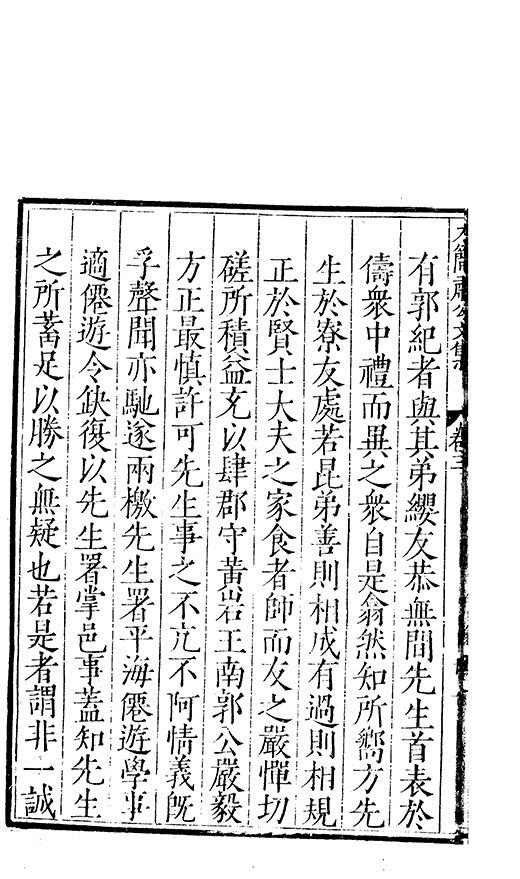 簡肅公文集 卷三
有郭紀者與其弟纓友恭無間先生首表於
儔衆中禮而異之衆自是翕然知所嚮方先
生於寮友處若昆弟善則相成有過則相規
正於賢士大夫之家食者師而友之嚴憚切
磋所積益充以肆郡守黃岩王南郭公嚴毅
方正最慎許可先生事之不亢不阿情義既
孚聲聞亦馳遂兩檄先生署平海僊遊學事
適僊遊令缺復以先生署掌邑事蓋知先生
之所蓄足以勝之無疑也若是者謂非一誠